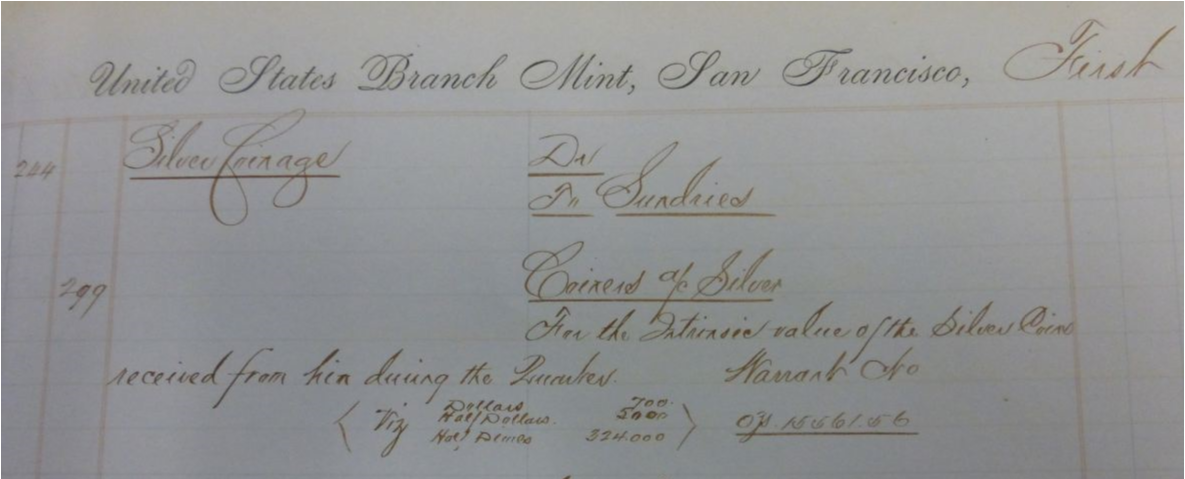 United States Branch Mint, San Francisco, First
244 Silver Coinage Dr
To Sundries
299 Coiners a/c Silver
For the Intrinsic value of the Silver Coin
received from him during the Quarter. Warrant No
Dollars 700.
Viz Half Dollars. 5000 Ozs. 15561.56
Half Dimes 324.000